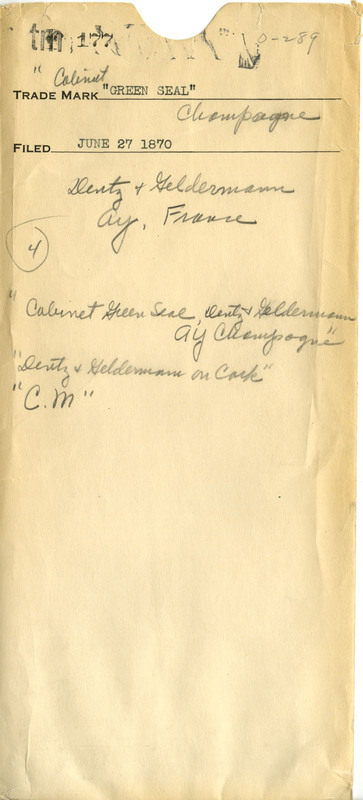 tm 177 0-289
"Cabinet
TRADE MARK "GREEN SEAL"
Champagne
FILED JUNE 27 1870
Deutz & Geldermann
Ay, France
4
"Cabinet Green Seal, Deutz & Geldermann
Ay Champagne"
"Deutz & Geldermann on Cork"
"C.M"